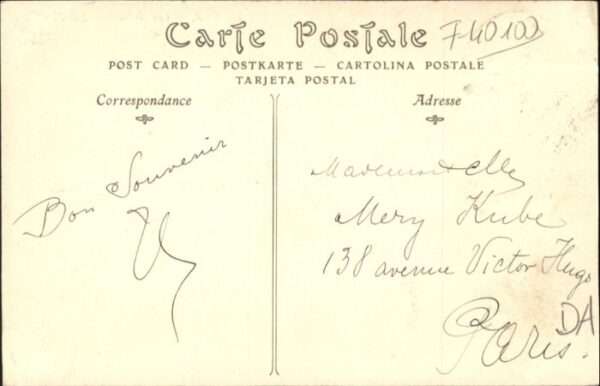 Carte Postale
F40100
POST CARD — POSTKARTE — CARTOLINA POSTALE
TARJETA POSTAL
Correspondance
Adresse
Bon Souvenir
Mademoiselle
Mery Kube
138 avenue Victor Hugo
Paris.
DA